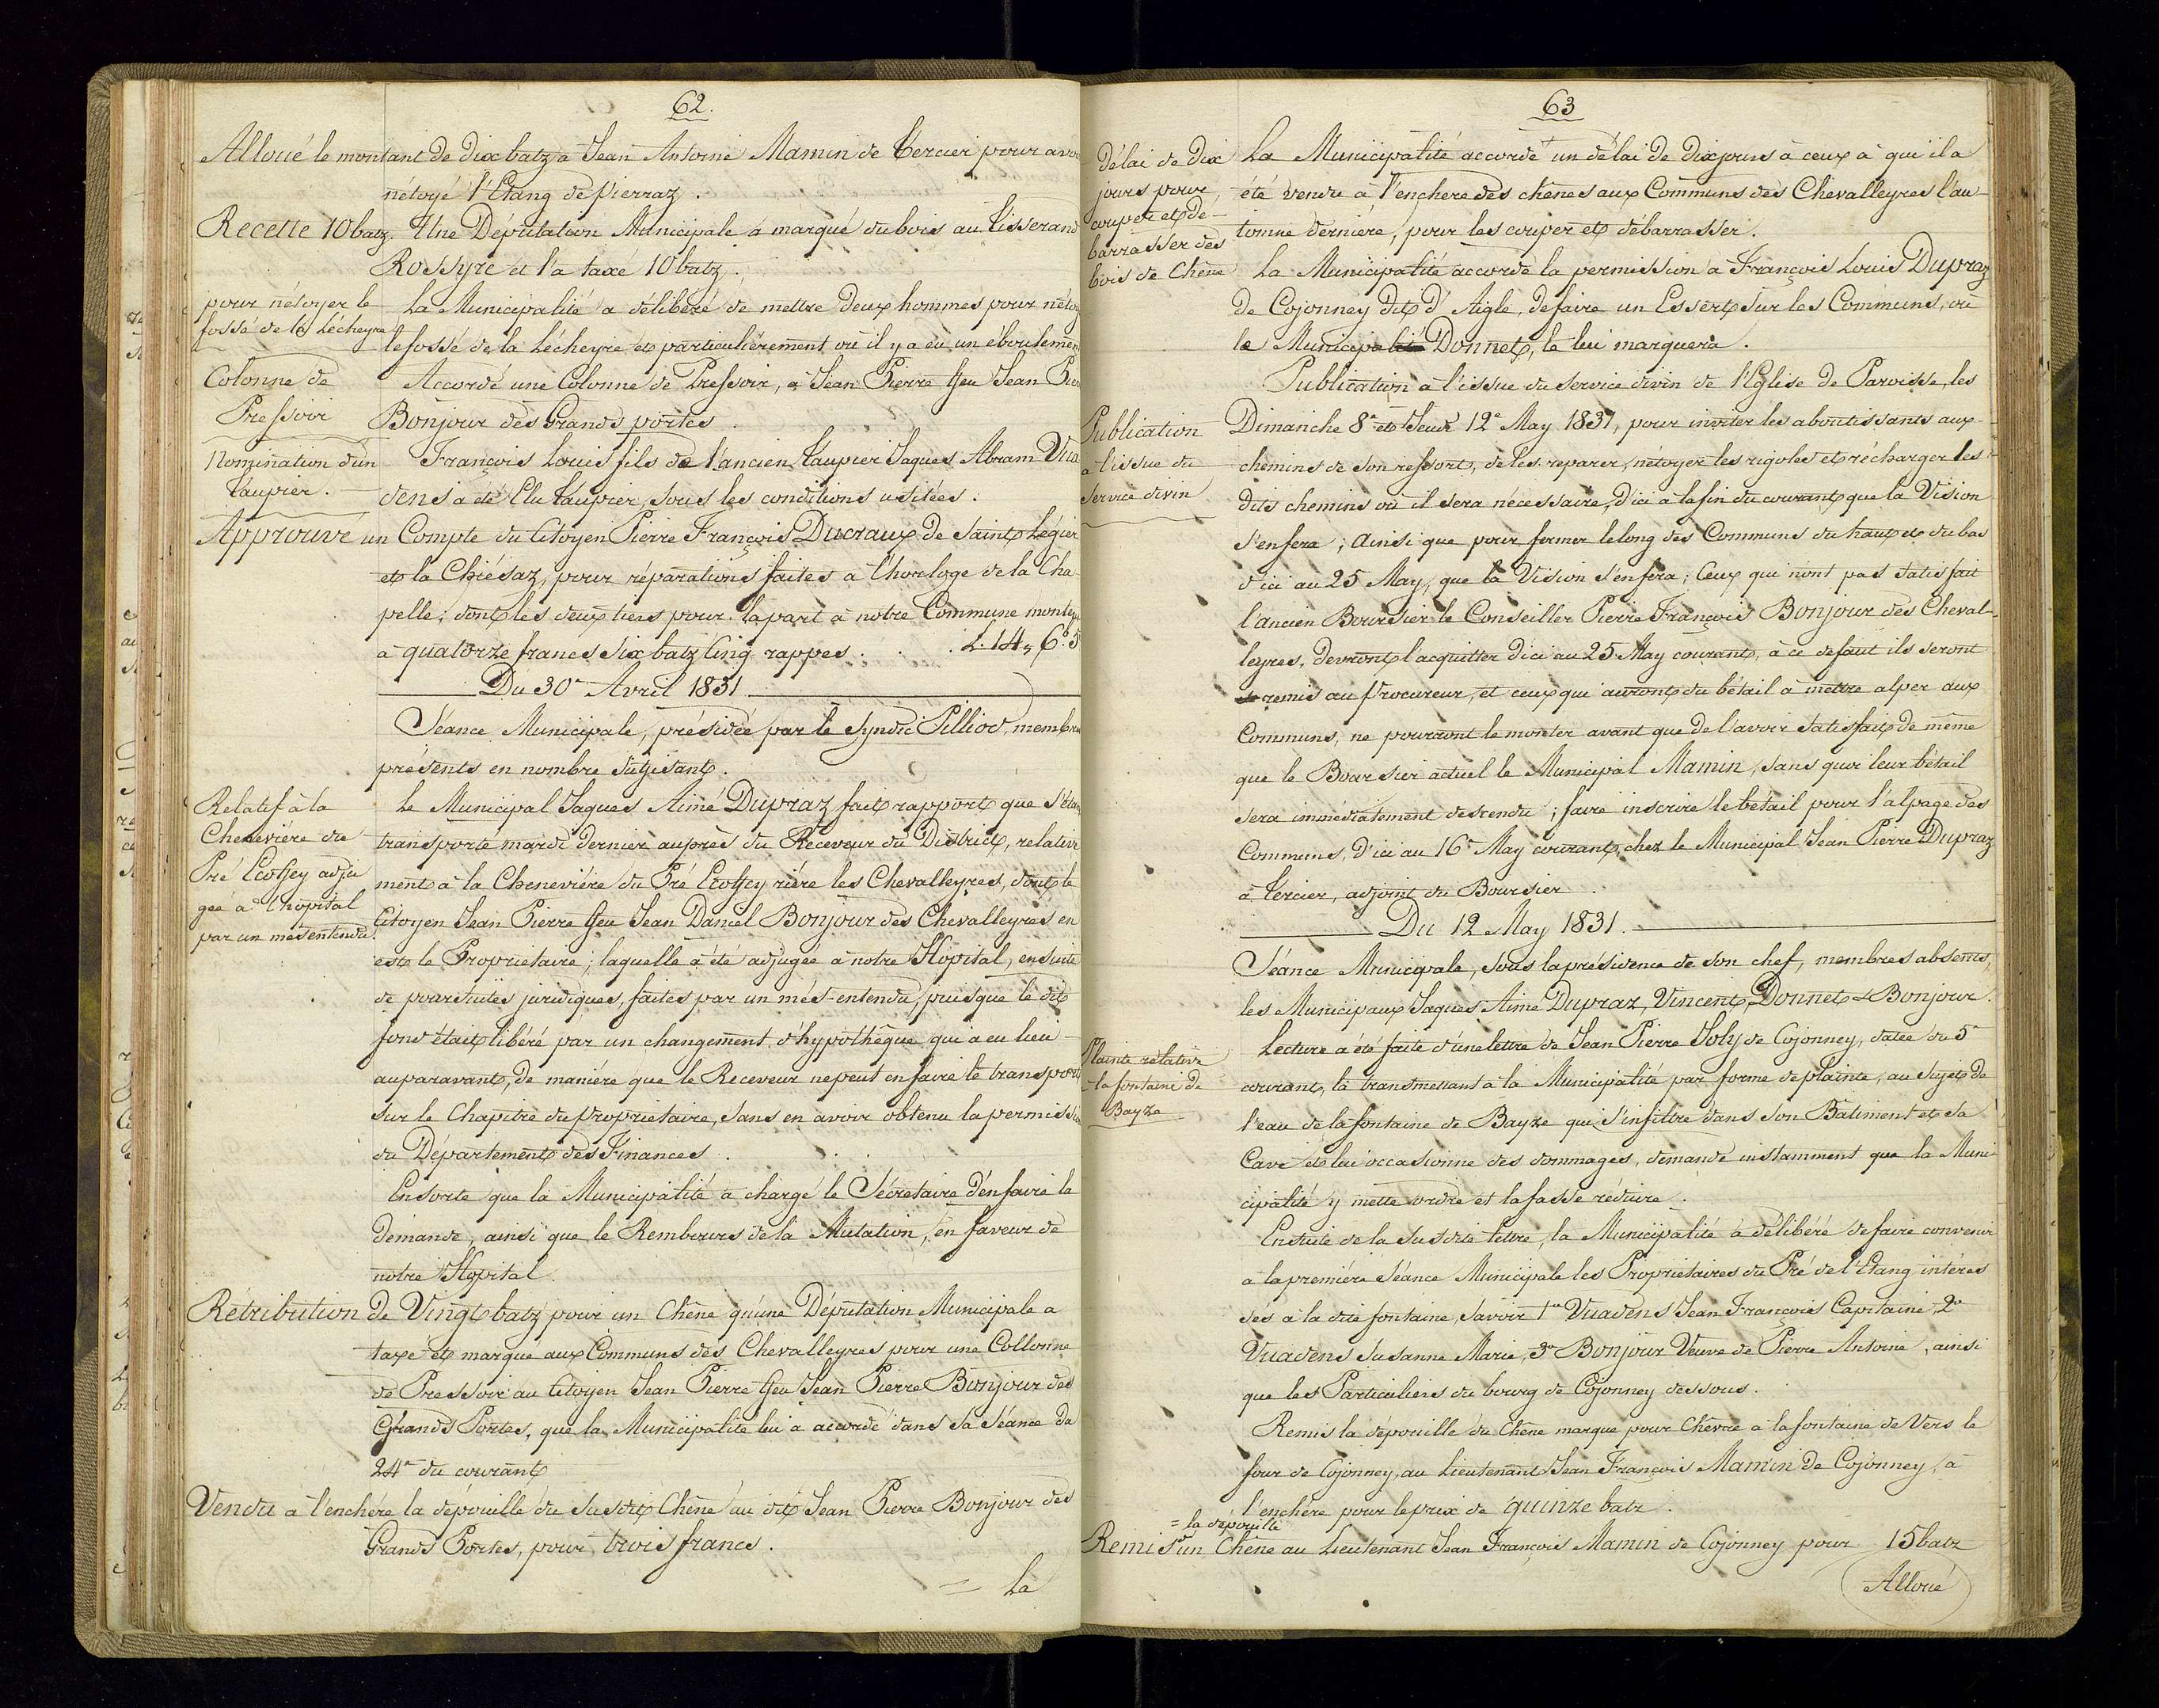 62.
Alloué le montant de dix batz à Jean Antoine Mamin de Tercier pour avoir
nétoyé l'Etang de pierraz.
Recette 10 batz. Une Députation Municipale a marqué du bois au tisserand
Rossyre et l'a taxé 10 batz.
pour nétoyer le
fossé de la Lécheyre
La Municipalité a délibéré de mettre deux hommes pour nétoy
le fossé de la Lécheyre et particuliérement où il y a eu un éboulemen
Colonne de
Pressoir
Accordé une Colonne de Pressoir, à Jean Pierre feu Jean Pier
Bonjour des Grands portes.
Nomination d'un
Taupier.
François Louis fils de l'ancien taupier Jaques Abram Vua
dens a été Elu taupier, sous les conditions usitées.
Approuvé un Compte du Citoyen Pierre François Ducraux de Saint Légier
et la Chiésaz, pour réparations faites à l'horloge de la Cha
pelle; dont les deux tiers pour la part à notre Commune monten
à quatorze francs six batz cinq rappes . . . L. 14 „ 6 b. 5
Du 30e Avril 1831
Séance Municipale, présidée par le Syndic Pilliod, membres
présents en nombre suffisant.
Relatif à la
Cheneviére du
Pré Ecoffey adju
gée à l'hopital
par un mésentendu.
Le Municipal Jaques Aimé Dupraz fait rapport que s'étan
transporté mardi dernier auprès du Receveur du District, relativ
ment à la Cheneviére du Pré Ecoffey riére les Chevalleyres, dont le
Citoyen Jean Pierre feu Jean Daniel Bonjour des Chevalleyres en
est le Propriétaire; laquelle a été adjugée à notre Hopital, ensuite
de poursuites juridiques, faites par un més-entendu, puisque le dit
fond était libéré par un changement d'hypothèque qui a eu lieu
auparavant, de manière que le Receveur ne peut en faire le transport
sur le Chapitre du propriétaire, sans en avoir obtenu la permission
du Département des Finances.
Ensorte que la Municipalité a chargé le Sécretaire d'en faire la
demande, ainsi que le Rembours de la Mutation, en faveur de
notre Hopital.
Rétribution de Vingt batz pour un Chêne qu'une Députation Municipale a
taxé et marqué aux Communs des Chevalleyres pour une Collonne
de Pressoir au Citoyen Jean Pierre feu Jean Pierre Bonjour des
Grands Portes, que la Municipalité lui a accordé dans sa Séance du
24e du courant
Vendu à l'enchére la dépouille du susdit Chêne au dit Jean Pierre Bonjour des
Grands Portes, pour trois francs.
= La
63
Délai de dix
jours pour
couper et dé-
barrasser des
bois de Chêne
La Municipalité accorde un délai de dix jours à ceux à qui il a
été vendu à l'enchere des chênes aux Communs des Chevalleyres l'au
tomne derniére, pour les couper et débarrasser.
La Municipalité accorde la permission à François Louis Dupraz
de Cojonney dit d'Aigle, de faire un Essert sur les Communs, où
le Municipal Donnet, le lui marquera.
Publication à l'issue du service divin de l'Eglise de Paroisse, les
Publication
à l'issue du
service divin
Dimanche 8e et Jeudi 12e May 1831, pour inviter les aboutissants aux
chemins de son ressort, de les reparer, nétoyer les rigoles et récharger les
dits chemins où il sera nécessaire, d'ici à la fin du courant que la Vision
s'en fera; Ainsi que pour fermer le long des Communs du haut et du bas
d'ici au 25 May, que la Vision s'en fera; Ceux qui n'ont pas satisfait
l'ancien Boursier le Conseiller Pierre François Bonjour des Cheval-
leyres, devront l'acquitter d'ici au 25 May courant, à ce defaut ils seront
remis au Procureur, et ceux qui auront du bétail à mettre alper aux
Communs, ne pourront le monter avant que de l'avoir satisfait de même
que le Boursier actuel le Municipal Mamin, sans quoi leur bétail
sera immédiatement descendu; faire inscrire le bétail pour l'alpage des
Communs, d'ici au 16e May courant, chez le Municipal Jean Pierre Dupraz
à Tercier, adjoint du Boursier.
Du 12 May 1831.
Séance Municipale, sous la présidence de son chef, membres absents,
les Municipaux Jaques Aimé Dupraz, Vincent, Donnet & Bonjour.
Plainte relative
à la fontaine de
Bayze
Lecture a été faite d'une lettre de Jean Pierre Joly de Cojonney, datée du 5e
courant, la transmettant à la Municipalité par forme de plainte, au sujet de
l'eau de la fontaine de Bayze qui s'infiltre dans son Batiment et sa
Cave et lui occasionne des dommages, demande instamment que la Muni-
cipalité y mette ordre et la fasse réduire.
Ensuite de la susdite lettre, la Municipalité a délibéré de faire convenir
à la premiére Séance Municipale les Propriétaires du Pré de l'Etang intéres
sés à la dite fontaine, savoir 1o Vuadens Jean François Capitaine, 2o
Vuadens Susanne Marie, 3o Bonjour Veuve de Pierre Antoine, ainsi
que les Particuliers du bourg de Cojonney dessous.
Remis la dépouille du Chêne marqué pour Chêvre à la fontaine de Vers le
four de Cojonney, au Lieutenant Jean François Mamin de Cojonney, à
l'enchére pour le prix de quinze batz.
= la dépouille
Remis d'un Chêne au Lieutenant Jean François Mamin de Cojonney pour 15 batz
Alloué